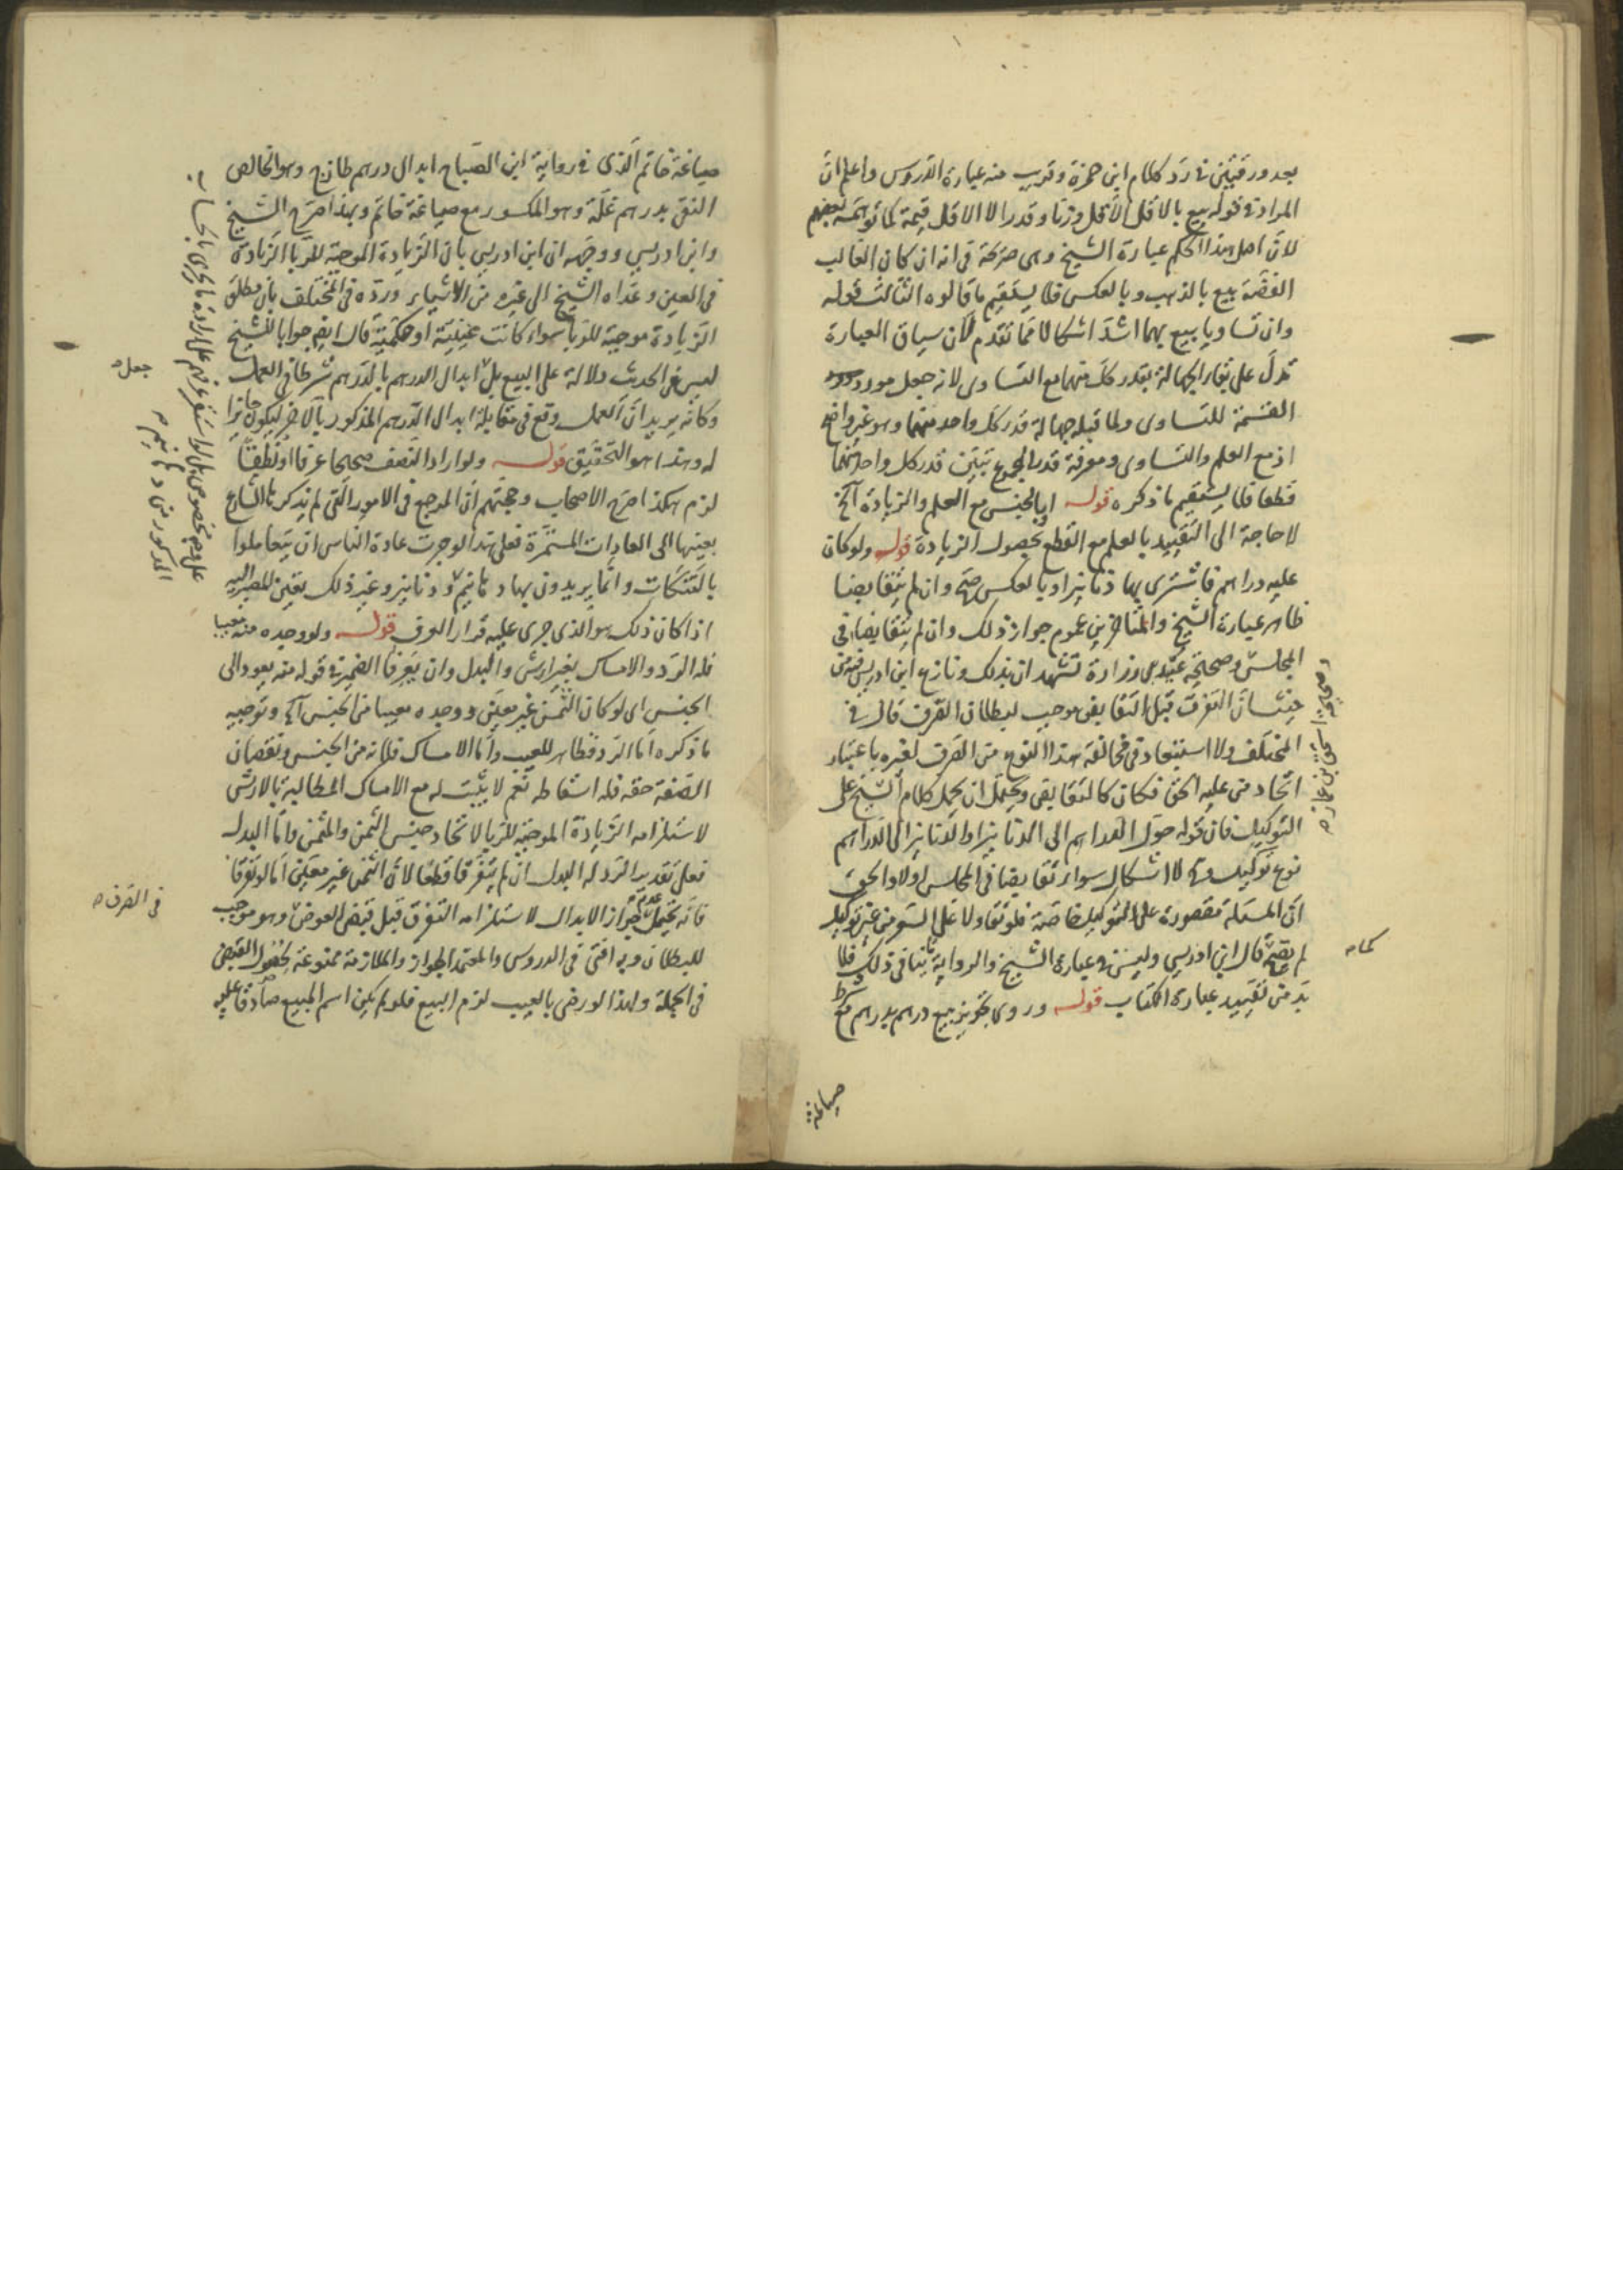 بعد ورقتين في رد كلام ابن حمزة وقريب منه عبارة الدروس واعلم ان
المراد في قوله بيع بالاقل الاقل وزنا وقدرا لا الاقل قيمة كما توهمه بعضهم
لان اصل هذا الحكم عبارة الشيخ وهي صريحة في انه ان كان الغالب
الفضة بيع بالذهب وبالعكس فلا يستقيم ما قالوه الثالث قوله
وان تساويا بيع بهما اشد اشكالا مما تقدم لان سياق العبارة
تدل على بقاء الجهالة بقدر كل منهما مع التساوى لانه جعل مورد
القسمة للتساوى ولما قبله جهالة قدر كل واحد منهما وهو غير واضح
اذ مع العلم والتساوى ومعرفة قدر المجموع تبين قدر كل واحد منهما
قطعا فلا يستقيم ما ذكره قوله او بالجنس مع العلم والزيادة آلخ
لا حاجة الى التقييد بالعلم مع القطع بحصول الزيادة قوله ولو كان
عليه دراهم فاشترى بها دنانير او بالعكس صح وان لم يتقابضا
ظاهر عبارة الشيخ والمتاخرين عموم جواز ذلك وان لم يتقابضا في
المجلس وصحيحة عبيد بن زرارة تشهدان بذلك ونازع ابن ادريس فيه من
حيث ان التفرق قبل التقابض موجب لبطلان الصرف قال في
المختلف ولا استبعاد في مخالفة هذا النوع من الصرف لغيره باعتبار
اتحاد من عليه الحق فكان كالتقابض ويحتمل ان يحمل كلام الشيخ على
التوكيل فان قوله حول الدراهم الى الدنانير او الدنانير الى الدراهم
نوع توكيل وح لا اشكال سواء تقابضا في المجلس اولا والحق
ان المسئلة مقصورة على التوكيل خاصة فلو تقاولا على السوم من غير توكيل
لم يصح قال ابن ادريس وليس في عبارة الشيخ والرواية ما ينافي ذلك فلا
بد من تقييد عبارة الكتاب قوله وروى تجويز بيع درهم بدرهم مع
صياغة
وصحيحة اسحق بن عمار
كما
صياغة خاتم الذى في رواية ابن الصباح ابدال درهم طازج وهو الخالص
النقي بدرهم غلة وهو المكسور مع صياغة خاتم وبهذا صرح الشيخ
وابن ادريس ووجهه ابن ادريس بان الزيادة الموجبة للربا الزيادة
في العين وعداه الشيخ الى غيره من الاشياء ورده في المختلف بان مطلق
الزيادة موجبة للربا سواء كانت عينية او حكمية قال ايضا جوابا للشيخ
ليس في الحديث دلالة على البيع بل ابدال الدرهم بالدرهم شرطا في العمل
وكانه يريد ان العمل وقع في مقابلة ابدال الدرهم المذكور بالاخر ليكون جائزا
له وهذا هو التحقيق قوله ولو اراد النصف صحيحا عرفا او نطقا
لزم هكذا صرح الاصحاب وحجتهم ان المرجع في الامور التي لم يذكرها الشارع
بعينها الى العادات المستمرة فعلى هذا لو جرت عادة الناس ان يتعاملوا
بالتنكات وانما يريدون بها دنانير وغير ذلك تعين المصير اليه
اذا كان ذلك هو الذى جرى عليه قرار العرف قوله ولو وجده منه معيبا
فله الرد والامساك بغير ارش والبدل وان تفرقا الضمير في قوله منه يعود الى
الجنس اى لو كان الثمن غير معين ووجده معيبا من الجنس آلخ وتوجيه
ما ذكره اما الرد فظاهر للعيب واما الامساك فلانه من الجنس ونقصان
الصفة حقه فله اسقاطه نعم لا يثبت له مع الامساك المطالبة بالارش
لاستلزامه الزيادة الموجبة للربا لاتحاد جنس الثمن والمثمن واما البدل
فعلى تقدير الرد له البدل ان لم يتفرقا قطعا لان الثمن غير معين اما لو تفرقا
فانه يحتمل عدم جواز الابدال لاستلزامه التفرق قبل قبض العوض وهو موجب
للبطلان وبه افتى في الدروس والمعتمد الجواز والملازمة ممنوعة لحصول القبض
في الجملة ولهذا لو رضى بالعيب لزم البيع فلو لم يكن اسم المبيع صادقا عليه
جعل
في الصرف